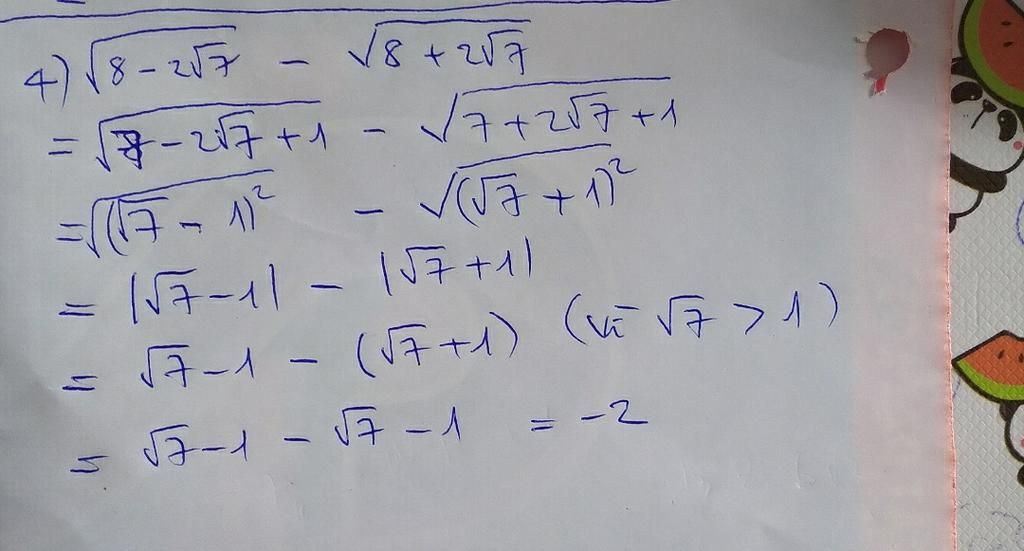 4) √(8 - 2√7) - √(8 + 2√7)
= √(7 - 2√7 + 1) - √(7 + 2√7 + 1)
= √((√7 - 1)²) - √((√7 + 1)²)
= |√7 - 1| - |√7 + 1|
= √7 - 1 - (√7 + 1) (vì √7 > 1)
= √7 - 1 - √7 - 1 = -2